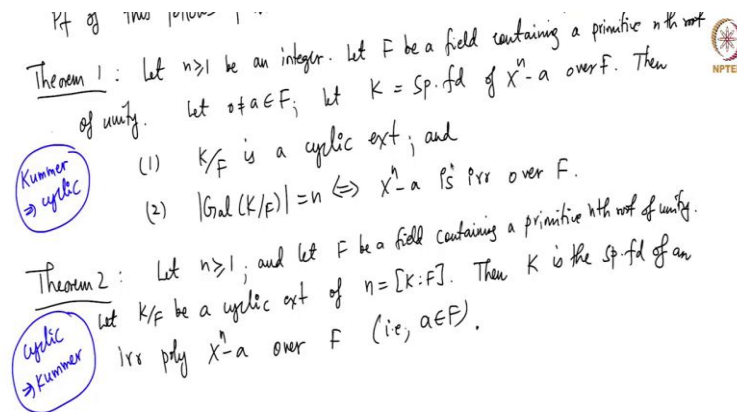 Pf of this follows
Theorem 1 : Let n≥1 be an integer. Let F be a field containing a primitive nth root
of unity. Let 0≠a∈F; Let K = Sp.fd of Xⁿ-a over F. Then
(1) K/F is a cyclic ext; and
(2) |Gal(K/F)|=n ⟺ Xⁿ-a is irr over F.
Kummer
⇒ cyclic
Theorem 2 : Let n≥1, and let F be a field containing a primitive nth root of unity.
Let K/F be a cyclic ext of n=[K:F]. Then K is the sp.fd of an
irr poly Xⁿ-a over F (i.e., a∈F).
cyclic
⇒ Kummer
NPTEL